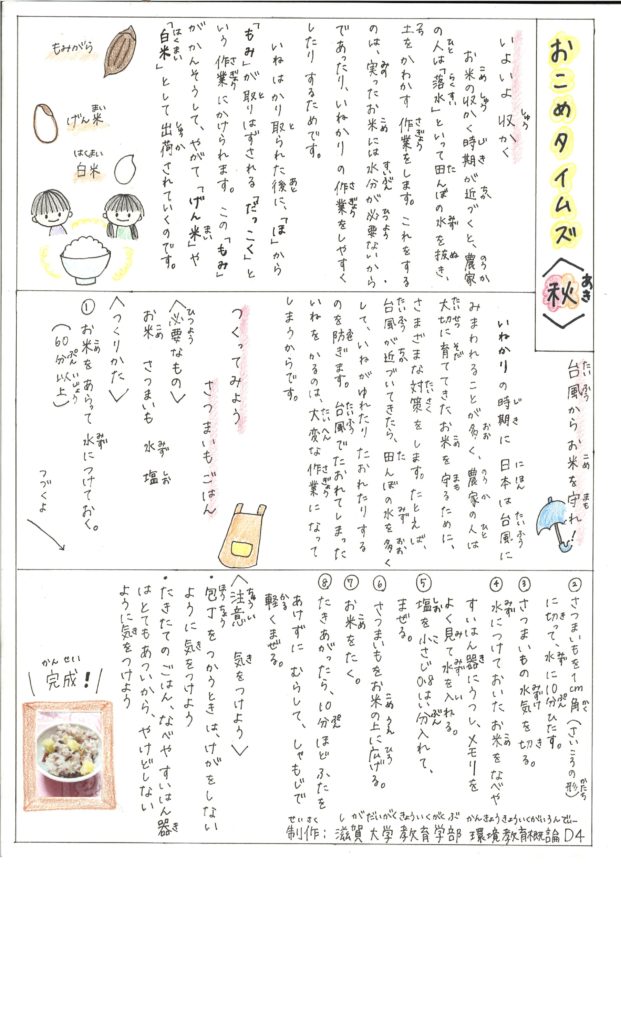 おこめタイムズ〈秋〉
あき
いよいよ収かく
お米の収かく時期が近づくと、農家
の人は「落水」といって田んぼの水を抜き、
土をかわかす作業をします。これをする
のは、実ったお米には水分が必要ないから
であったり、いねかりの作業をしやすく
したりするためです。
いねはかり取られた後に、「ほ」から
「もみ」が取りはずされる「だっこく」と
いう作業にかけられます。この「もみ」
がかんそうして、やがて「げん米」や
「白米」として出荷されていくのです。
もみがら
げん米
白米
台風からお米を守れ!
いねかりの時期に日本は台風に
みまわれることが多く、農家の人は
大切に育ててきたお米を守るために、
さまざまな対策をします。たとえば、
台風が近づいてきたら、田んぼの水を多く
して、いねがゆれたりたおれたりする
のを防ぎます。台風でたおれてしまった
いねをかるのは、大変な作業になって
しまうからです。
つくってみよう
さつまいもごはん
〈必要なもの〉
お米 さつまいも 水 塩
〈つくりかた〉
①お米をあらって水につけておく。
(60分以上)
つづくよ
②さつまいもを1cm角(さいころの形)
に切って、水に10分ひたす。
③さつまいもの水気を切る。
④水につけておいたお米をなべや
すいはん器にうつし、メモリを
よく見て水を入れる。
⑤塩を小さじ0.8はい分入れて、
まぜる。
⑥さつまいもをお米の上に広げる。
⑦お米をたく。
⑧たきあがったら、10分ほどふたを
あけずにむらして、しゃもじで
軽くまぜる。
〈注意 気をつけよう〉
・包丁をつかうときは、けがをしない
ように気をつけよう
・たきたてのごはん、なべやすいはん器
はとてもあついから、やけどしない
ように気をつけよう
かんせい
完成!
せいさく しがだいがくきょういくがくぶ かんきょうきょういくがいろんでぃー
制作:滋賀大学教育学部 環境教育概論D4